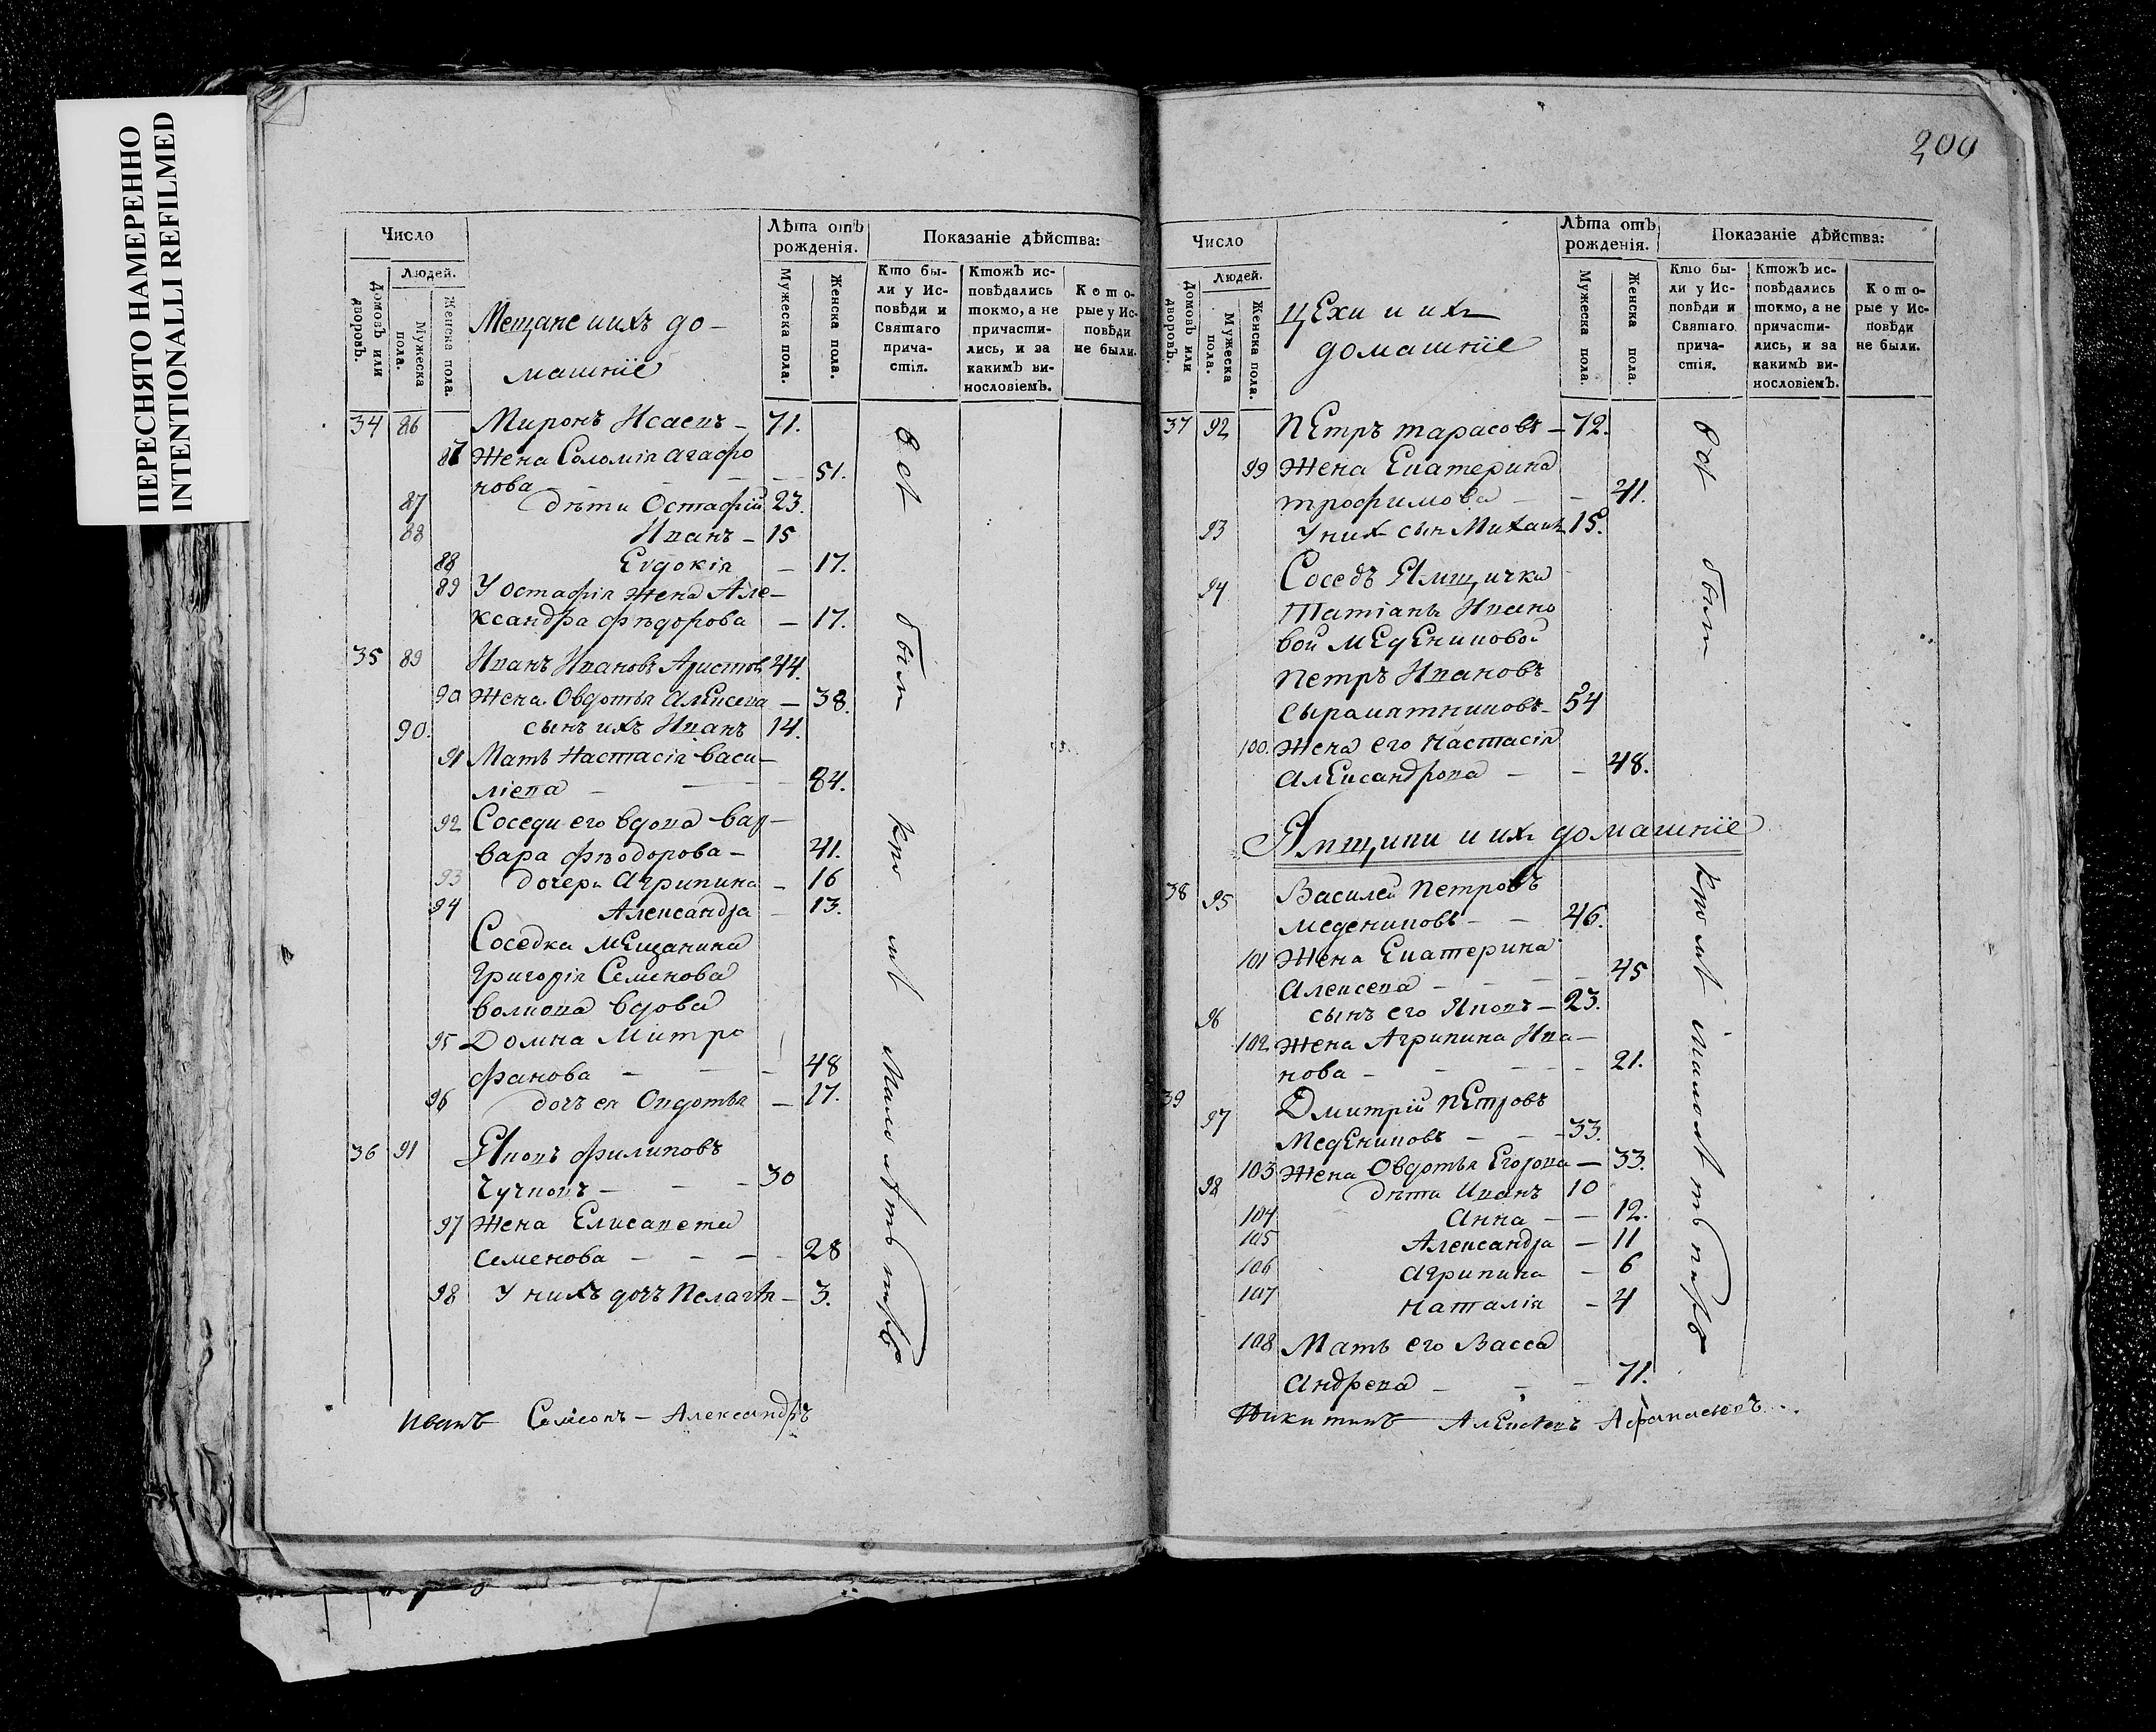 ПЕРЕСНЯТО НАМЕРЕННО
INTENTIONALLI REFILMED
Число
Людей.
Домовъ или дворовъ.
Мужеска пола.
Женска пола.
Мещане и ихъ до-
машнїе
Лѣта отъ рожденія.
Мужеска пола.
Женска пола.
Показаніе дѣйства:
Кто бы-
ли у Ис-
повѣди и
Святаго
прича-
стія.
Ктожъ ис-
повѣдались
токмо, а не
причасти-
лись, и за
какимъ ви-
нословіемъ.
Кото-
рые у Ис-
повѣди
не были.
34 86 Миронъ Исаевъ - 71.
87 Жена Соломія Агафо
нова - - - 51.
87 дѣти Остафій 23.
88 Иванъ - 15
88 Евдокія - 17.
89 У Остафія жена Але-
ксандра Фѣдорова - 17.
35 89 Иванъ Ивановъ Аристов 44.
90 Жена Овдотья Алексева - 38.
90. сынъ ихъ Иванъ 14.
91 Мать Настасія Васи-
ліева - - 84.
92 Соседи его вдова Вар-
вара Фѣодорова - 41.
93 дочери Агрипина - 16
94 Александра - 13.
Соседка мещанина
Григорія Семенова
Волкова вдова
95 Домна Митро
фанова - - - 48
96 дочь ея Овдотья - 17.
36 91 Яковъ Филиповъ
Чучковъ - - - 30
97 Жена Елисавета
Семенова - - - 28
98 У нихъ дочъ Пелагѣя - 3.
всѣ
были
кромѣ
малолѣтнихъ
Иванъ Симеонъ - Александръ
200
Число
Людей.
Домовъ или дворовъ.
Мужеска пола.
Женска пола.
Цехи и ихъ
домашнїе
Лѣта отъ рожденія.
Мужеска пола.
Женска пола.
Показаніе дѣйства:
Кто бы-
ли у Ис-
повѣди и
Святаго
прича-
стія.
Ктожъ ис-
повѣдались
токмо, а не
причасти-
лись, и за
какимъ ви-
нословіемъ.
Кото-
рые у Ис-
повѣди
не были.
37 92 Петръ Тарасовъ - 72.
99 Жена Екатерина
Трофимова - - 41.
93 У них сын Михаил 15.
94 Соседъ Ямщичка
Татіаны Ивано
вой Меденицовой
Петръ Ивановъ
Сыраматниковъ - 54
100. Жена его Настасія
Александрова - - 48.
Ямщики и их домашнїе
38 95 Василей Петровъ
Мединиковъ - - 46.
101 Жена Екатерина
Алексева - - - 45
96 сынъ его Яковъ - 23.
102 Жена Агрипина Ива-
нова - - - 21.
39 97 Дмитрій Петровъ
Мединиковъ - - 33.
103 Жена Овдотья Егорова - 33.
98 дѣти Иванъ 10
104 Анна - - 12.
105 Александра - 11
106 Агрипина - 6
107 Наталія - 4
108 Мать его Васса
Андрева - - - 71.
всѣ
были
кромѣ
малолѣтнихъ
Никитинъ Алексѣевъ Афанасьевъ